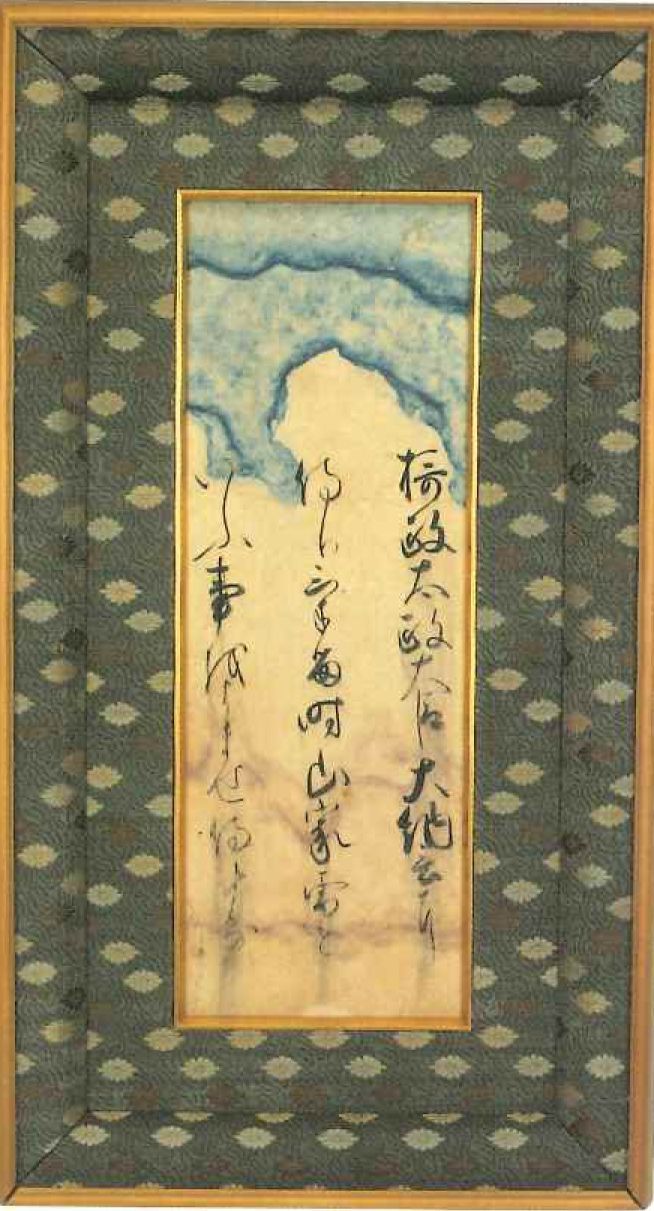 摂政太政大臣大納言に
侍りける時山家雪と
いふ事をよませ侍